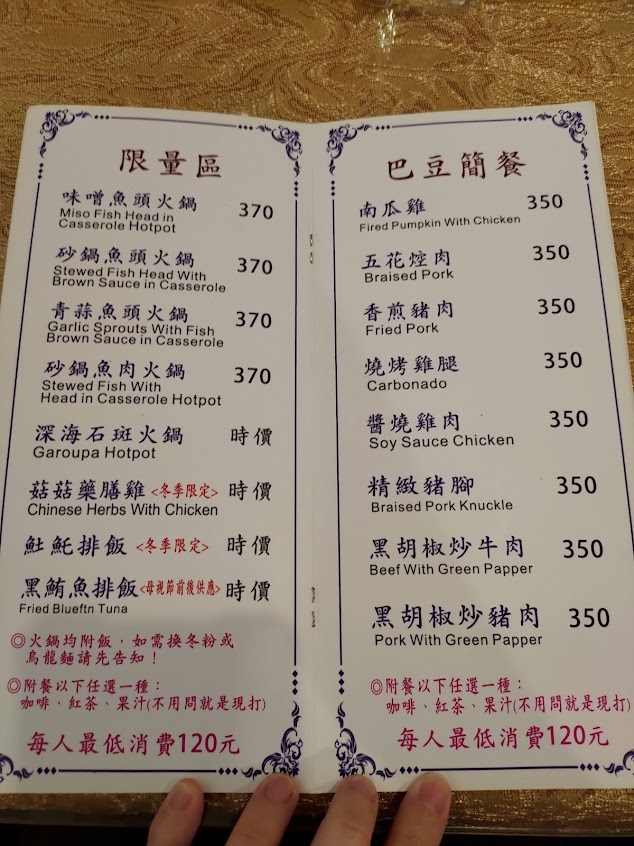 限量區
味噌魚頭火鍋 370
Miso Fish Head in
Casserole Hotpot
砂鍋魚頭火鍋 370
Stewed Fish Head With
Brown Sauce in Casserole
青蒜魚頭火鍋 370
Garlic Sprouts With Fish
Brown Sauce in Casserole
砂鍋魚肉火鍋 370
Stewed Fish With
Head in Casserole Hotpot
深海石斑火鍋 時價
Garoupa Hotpot
菇菇藥膳雞<冬季限定> 時價
Chinese Herbs With Chicken
𩵚魠排飯 <冬季限定> 時價
黑鮪魚排飯<母視節前後供應> 時價
Fried Blueftn Tuna
◎火鍋均附飯，如需換冬粉或
烏龍麵請先告知！
◎附餐以下任選一種：
咖啡、紅茶、果汁(不用問就是現打)
每人最低消費120元
巴豆簡餐
南瓜雞 350
Fired Pumpkin With Chicken
五花焢肉 350
Braised Pork
香煎豬肉 350
Fried Pork
燒烤雞腿 350
Carbonado
醬燒雞肉 350
Soy Sauce Chicken
精緻豬腳 350
Braised Pork Knuckle
黑胡椒炒牛肉 350
Beef With Green Papper
黑胡椒炒豬肉 350
Pork With Green Papper
◎附餐以下任選一種：
咖啡、紅茶、果汁(不用問就是現打)
每人最低消費120元